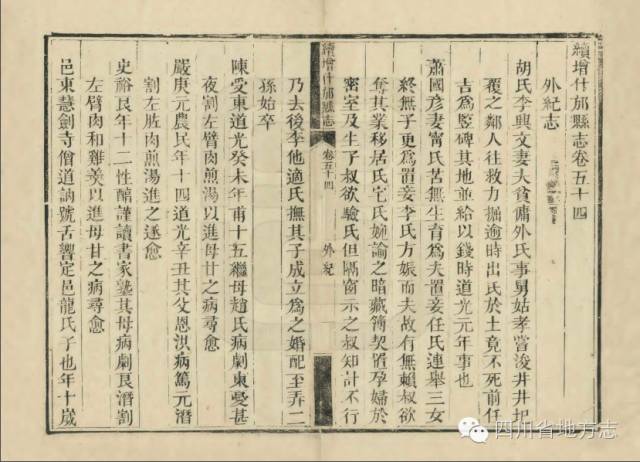 續增什邡縣志卷五十四
外紀志
胡氏李興文妻夫貧傭外氏事舅姑孝嘗浚井井圯
覆之鄰人往救力掘逾時出氏於土竟不死前任
吉為竪碑其地並給以錢時道光元年事也
蕭國彥妻甯氏苦無生育為夫置妾任氏連舉三女
終無子更為置妾李氏方娠而夫故有無賴叔欲
奪其業移居氏宅氏婉諭之暗藏簿契置孕婦於
密室及生子叔欲驗氏但隔窗示之叔知計不行
續增什邡縣志
卷五十四
外紀
乃去後李他適氏撫其子成立為之婚配至弄二
孫始卒
陳受東道光癸未年甫十五繼母趙氏病劇東憂甚
夜割左臂肉煎湯以進母甘之病尋愈
嚴庚元農民年十四道光辛丑其父恩洪病篤元潛
割左肱肉煎湯進之遂愈
史裕良年十二性醇謹讀書家塾其母病劇良潛割
左臂肉和雞羹以進母甘之病尋愈
邑東慧劍寺僧道訥號舌響定邑龍氏子也年十歲
四川省地方志